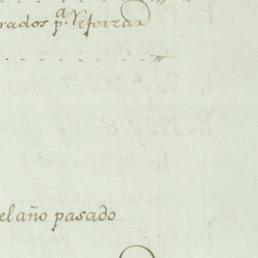 rados p.ª reforzar
el año pasado